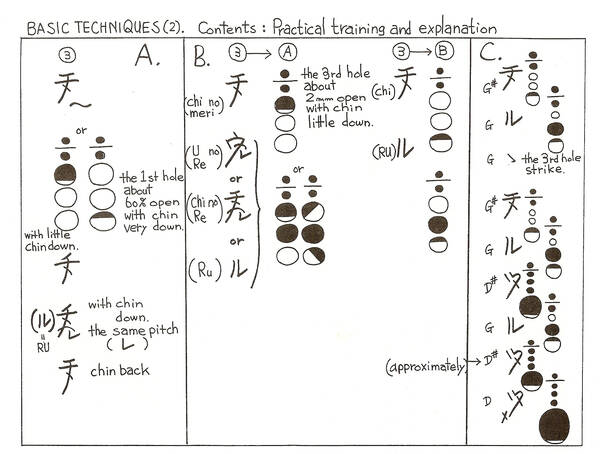 BASIC TECHNIQUES(2). Contents : Practical training and explanation
③ A.
チ
or
the 1st hole
about
60% open
with chin
very down.
with little
chin down.
チ
(ル)
=
RU
チレ
with chin
down.
the same pitch
( レ )
チ chin back
B. ③ → Ⓐ
(chi no
meri)
チ
the 3rd hole
about
2mm open
with chin
little down.
(U no
Re)
ウレ
or
or
(Chi no
Re)
チレ
or
(Ru) ル
③ → Ⓑ
(chi) チ
(RU) ル
(approximately) →
C.
G# チ
G ル
G ヽ the 3rd hole
strike.
G# チ
G ル
D# ツメ
G ル
D# ツメ
D メツメ